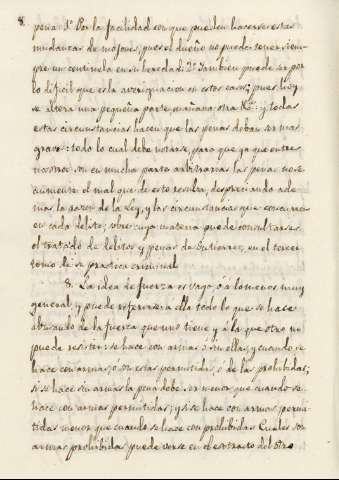 8.
pena 1º Por la facilidad con que pueden hacerse estas
mudanzas de mojones, pues el dueño no puede tener siem-
pre un centinela en su heredad: 2º Tambien puede ser por
lo dificil que es la averiguacion en estos casos; pues hoy
se altera una pequeña parte, mañana otra &ª: y todas
estas circunstancias hacen que las penas deban ser mas
graves: todo lo cual debe notarse, para que ya que entre
nosotros son en mucha parte arbitrarias las penas no se
aumente el mal que de esto resulta, despreciando ade
mas la razon de la Ley, y las circunstancias que concurren
en cada delito; sobre cuya materia puede consultarse
el tratado de delitos y penas de Gutierrez, en el tercer
tomo de su practica criminal
8. La idea de fuerza es vaga ó a lo menos muy
general, y puede referirse a ella todo lo que se hace
abusando de la fuerza que uno tiene y a la que otro no
puede resistir: se hace con armas ó sin ellas, y cuando se
hace con armas, ó son estas permitidas, ó de las prohibidas;
si se hace sin armas la pena debe ser menor que cuando se
hace con armas permitidas; y si se hace con armas permi-
tidas menor que cuando se hace con prohibidas. Cuales son
armas prohibidas puede verse en el estracto del